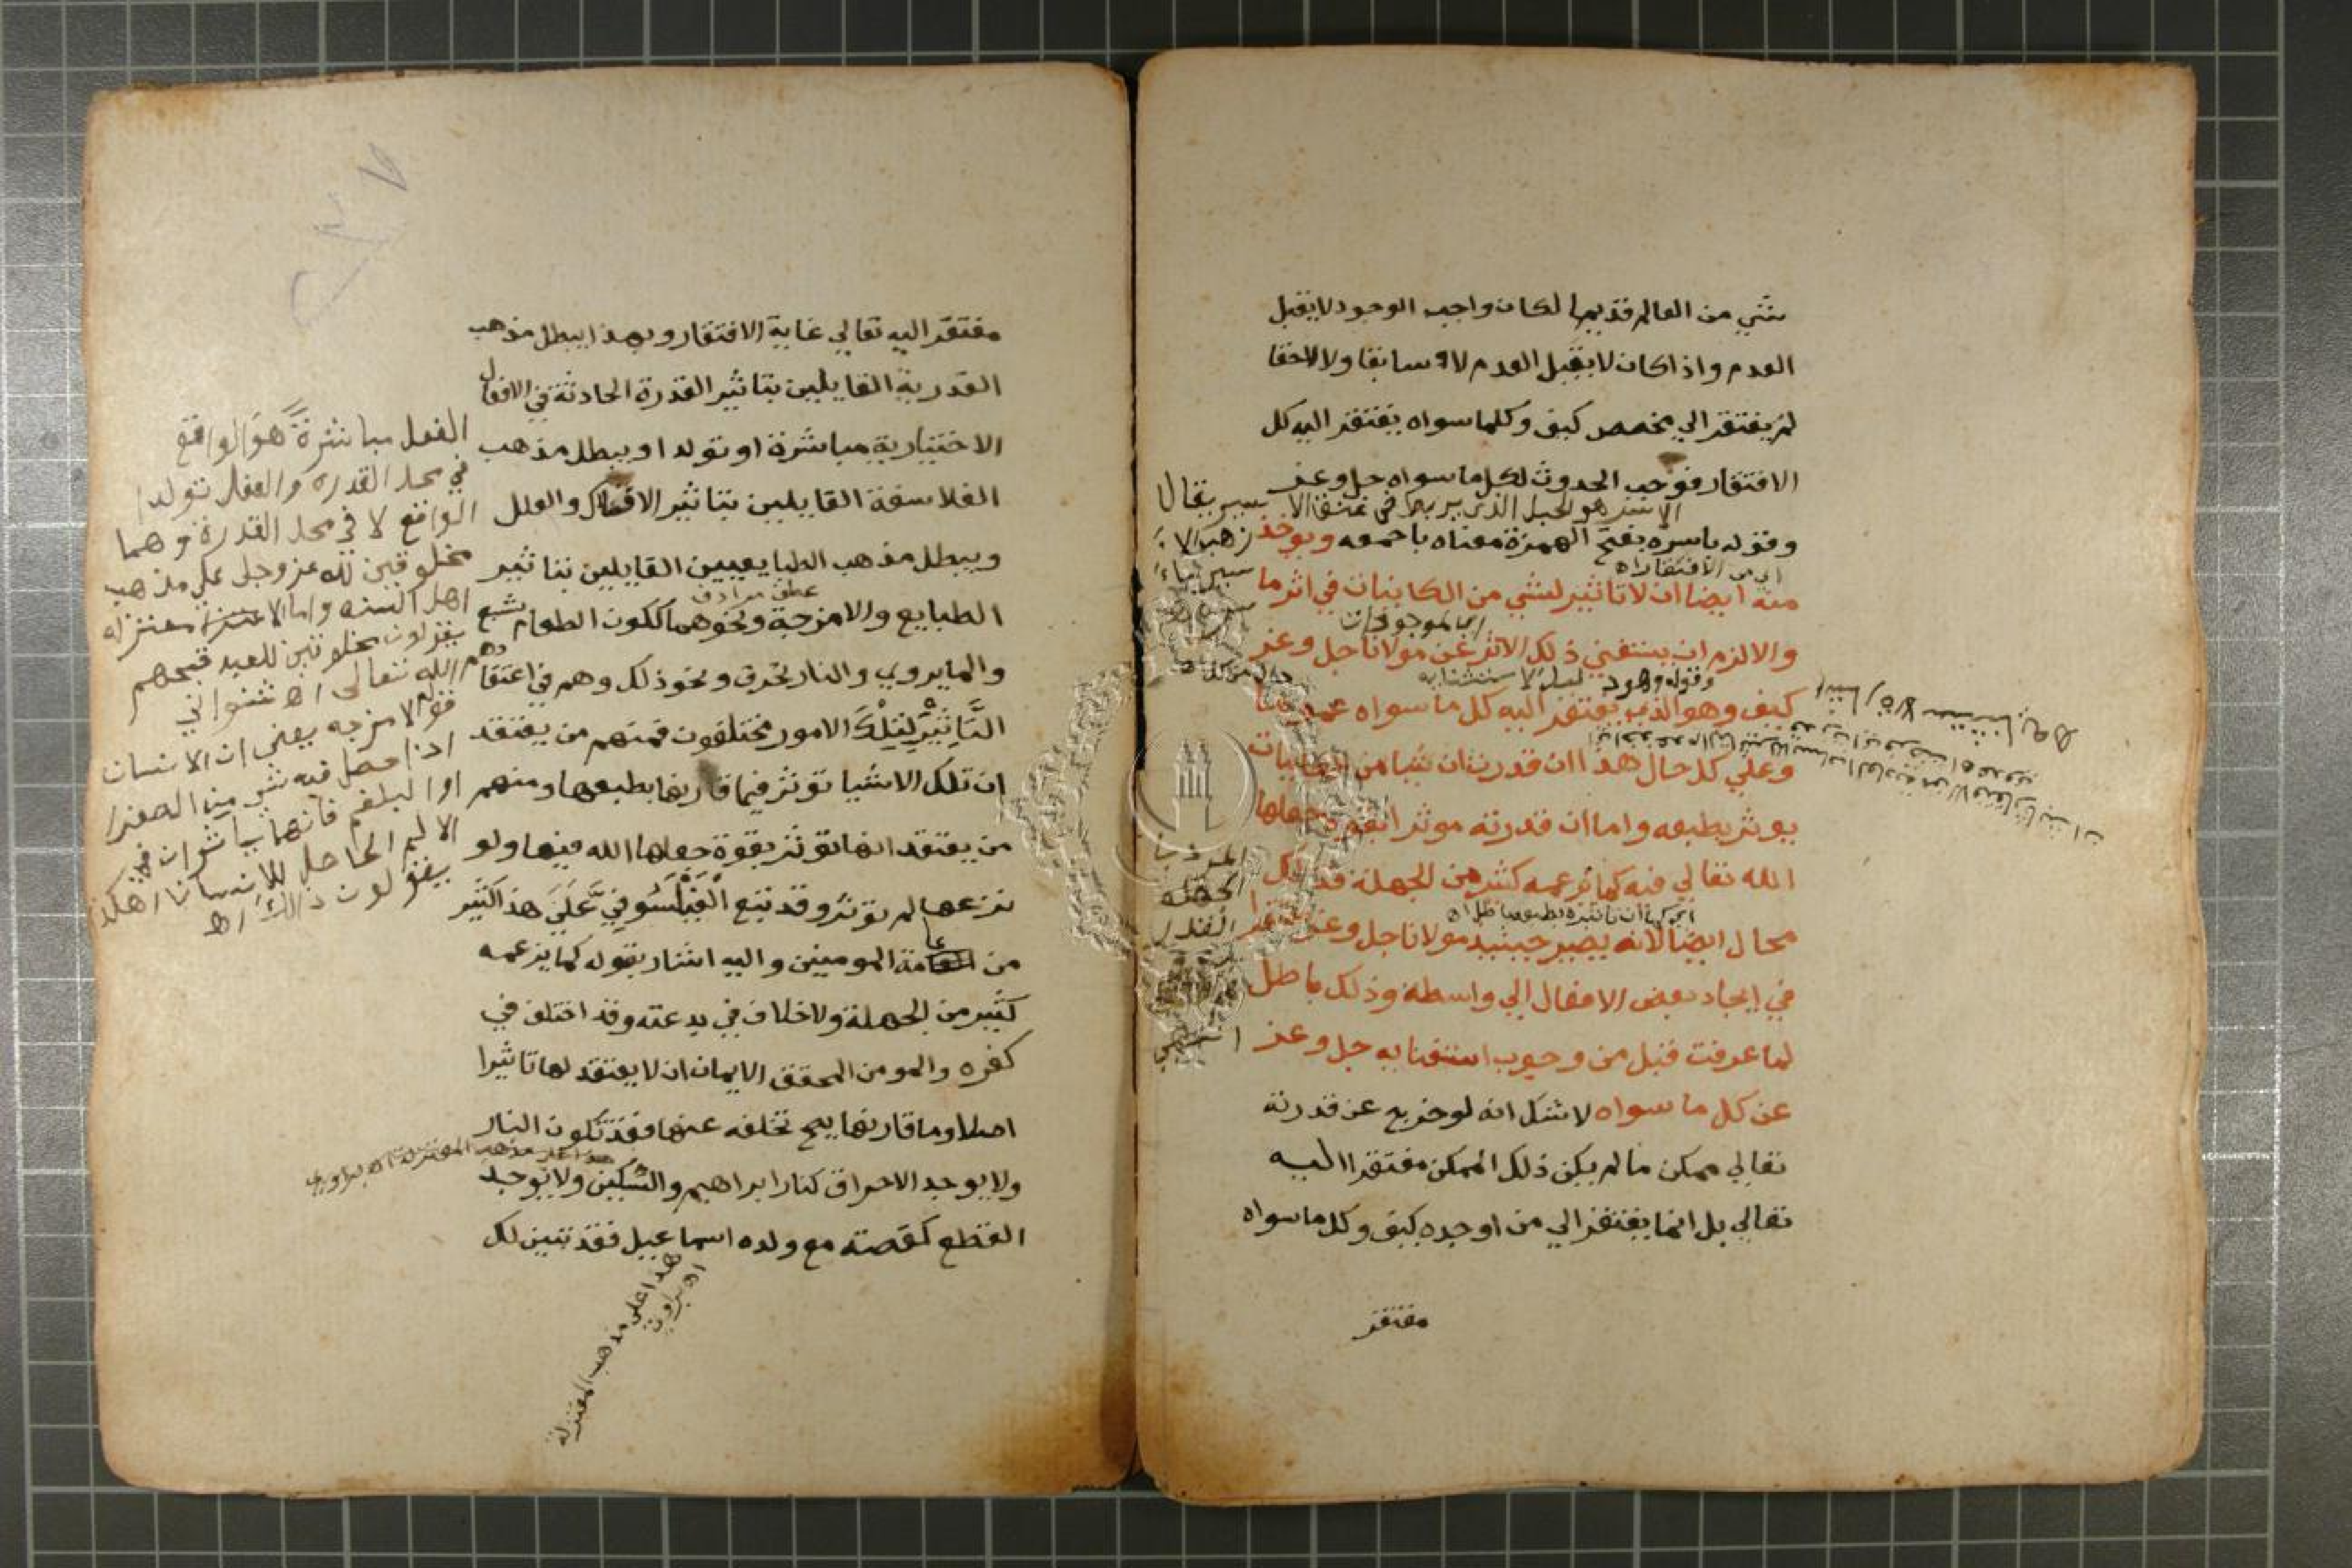 شي من العالم قديما لكان واجب الوجود لا يقبل
العدم واذا كان لا يقبل العدم لا سابقا ولا لاحقا
لم يفتقر الي مخصص كيف وكلما سواه يفتقر اليه كل
الافتقار فوجب الحدوث لكل ما سواه جل وعز
الاسر هو الحبل الذي يربط
وقوله باسره بفتح الهمزة معناه باجمعه ويوخذ
اي من الافتقار اه
منه ايضا ان لا تاثير لشي من الكاينات في اثر ما
والا لزم ان يستغني ذلك الاثر عن مولانا جل وعز
كيف وهو الذي يفتقر اليه كل ما سواه عموما
وعلي كل حال هذا ان قدرت ان شيا من الكاينات
يوثر بطبعه واما ان قدرته موثرا بقوة جعلها
الله تعالي فيه كما يزعمه كثير من الجهلة فذلك
محال ايضا لانه يصير حينيذ مولانا جل وعز مفتقرا
في ايجاد بعض الافعال الي واسطة وذلك باطل
لما عرفت قبل من وجوب استغنايه جل وعز
عن كل ما سواه لا شك انه لو خرج عن قدرته
تعالي ممكن ما لم يكن ذلك الممكن مفتقرا اليه
تعالي بل انما يفتقر الي من اوجده كيف وكل ما سواه
مفتقر
مفتقر اليه تعالي غاية الافتقار وبهذا يبطل مذهب
القدرية القايلين بتاثير القدرة الحادثة في الافعال
الاختيارية مباشرة او تولدا ويبطل مذهب
الفلاسفة القايلين بتاثير الافلاك والعلل
ويبطل مذهب الطبايعيين القايلين بتاثير
عطف مرادف
الطبايع والامزجة ونحوهما ككون الطعام يشبع
والما يروي والنار تحرق ونحو ذلك وهم في اعتقادهم
التاثير لتلك الامور مختلفون فمنهم من يعتقد
ان تلك الاشيا توثر فيما قارنها بطبعها ومنهم
من يعتقد انها توثر بقوة جعلها الله فيها ولو
نزعها لم توثر وقد تبع الفيلسوفي علي هذا كثير
من عامة المومنين واليه اشار بقوله كما يزعمه
كثير من الجهلة ولا خلاف في بدعته وقد اختلف في
كفره والمومن المحقق الايمان ان لا يعتقد لها تاثيرا
اصلا وما قارنها يصح تخلفه عنها فقد تكون النار
ولا يوجد الاحراق كنار ابراهيم والسكين ولا يوجد
القطع كقصته مع ولده اسماعيل فقد تبين لك
هذا علي مذهب المعتزلة
الفعل مباشرة هو الواقع
في محل القدرة والفعل تولدا
الواقع لا في محل القدرة وهما
مخلوقين لله عز وجل علي مذهب
اهل السنه واما المعتزله
يقولون مخلوقين للعبد قبحهم
الله تعالى اه شنواني
قوله الامزجه يعني ان الانسان
اذا حصل فيه شي من الصفرا
او البلغم فانهما يباشران
الاليم الحاصل للانسان اهكذا
يقولون ذالك اه